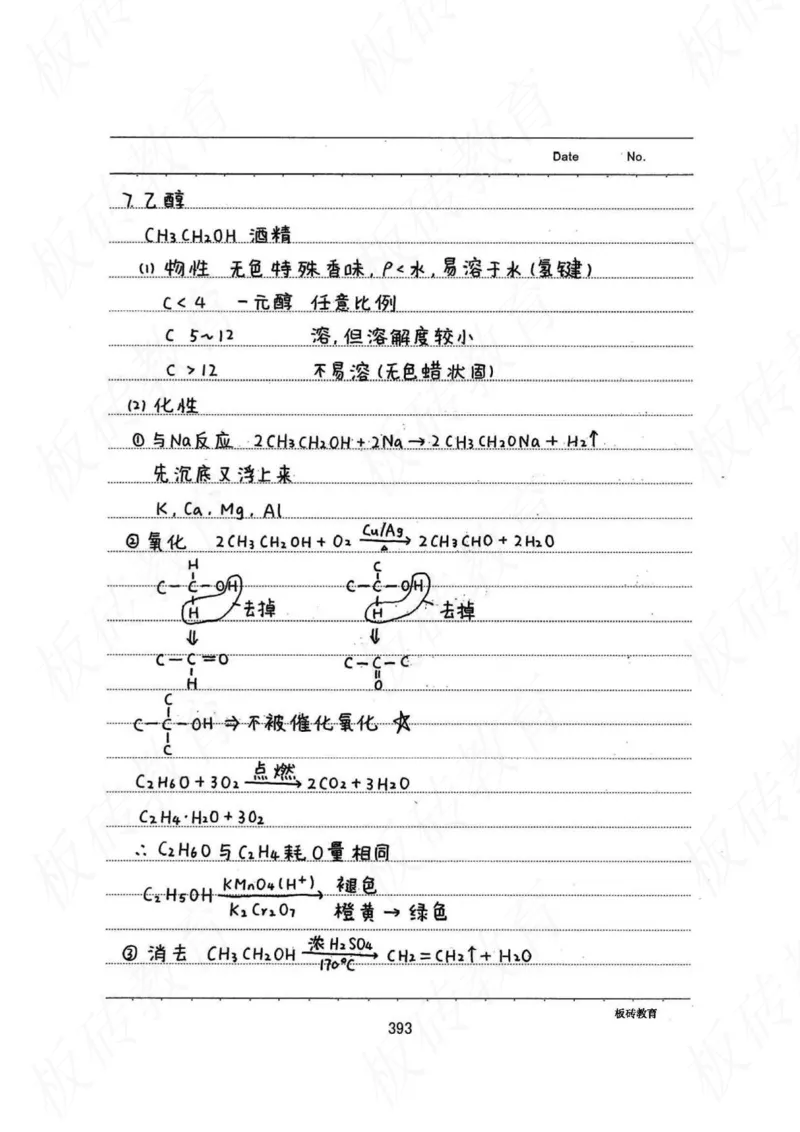 Date No.
7. 乙醇
CH3CH2OH 酒精
(1) 物性 无色特殊香味, ρ<水, 易溶于水 (氢键)
C<4 一元醇 任意比例
C 5~12 溶, 但溶解度较小
C >12 不易溶 (无色蜡状固)
(2) 化性
① 与Na反应 2CH3CH2OH + 2Na → 2CH3CH2ONa + H2↑
先沉底又浮上来
K, Ca, Mg, Al
② 氧化 2CH3CH2OH + O2 Cu/Ag △ → 2CH3CHO + 2H2O
H C
C-C-OH C-C-OH
H 去掉 H 去掉
⇓ ⇓
C-C=O C-C-C
H O
C
C-C-OH ⇒ 不被催化氧化 ☆
C
C2H6O + 3O2 点燃 → 2CO2 + 3H2O
C2H4·H2O + 3O2
∴ C2H6O 与 C2H4 耗 O量相同
C2H5OH KMnO4(H+) → 褪色
K2Cr2O7 橙黄 → 绿色
③ 消去 CH3CH2OH 浓H2SO4 170℃ → CH2=CH2↑ + H2O
板砖教育
393